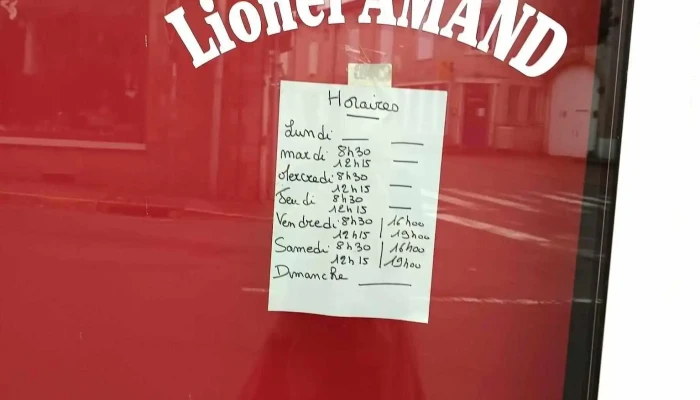 Lionel AMAND
Horaires
Lundi — —
mardi 8h30 —
12h15
Mercredi 8h30
12h15 —
Jeudi 8h30
12h15 —
Vendredi 8h30 | 16h00
12h15 | 19h00
Samedi 8h30 | 16h00
12h15 | 19h00
Dimanche —